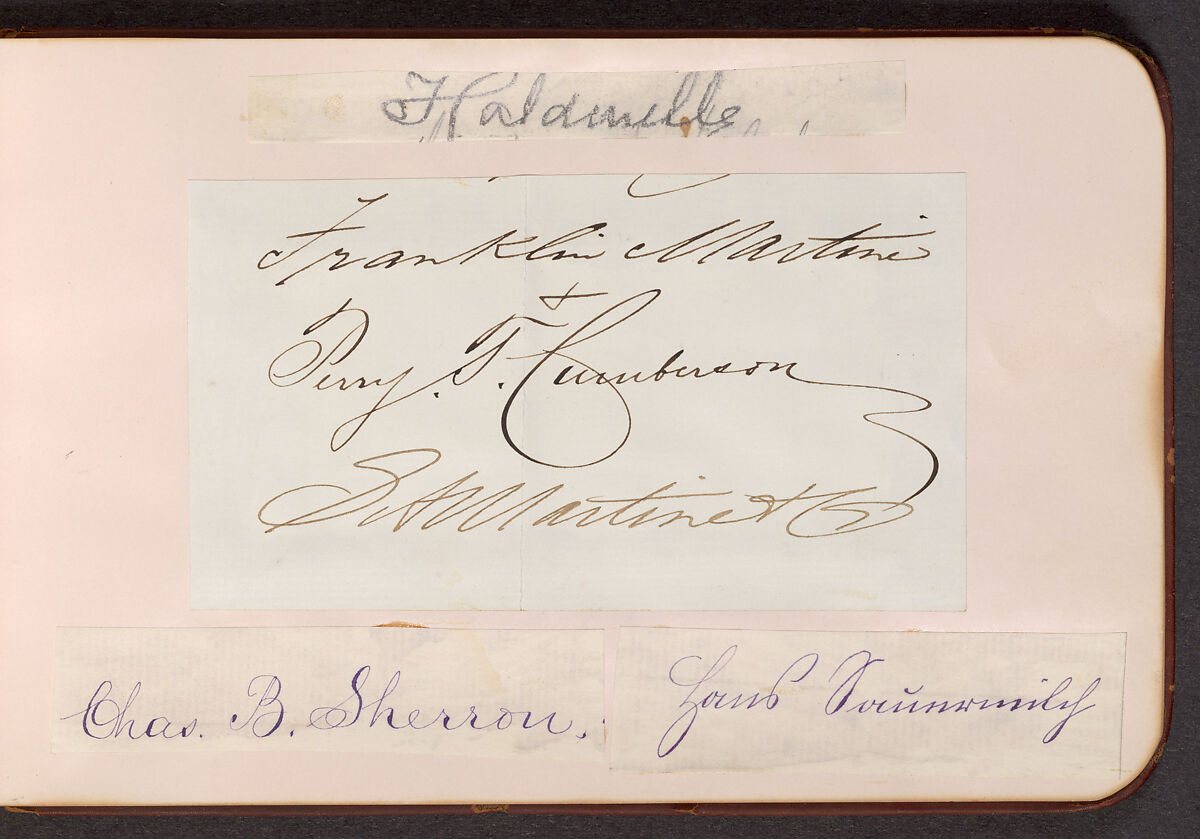 Franklin Martine
Perry. T. Cumberson
S A Martinet Co
Chas. B. Sherron.
Hans Sauermilch